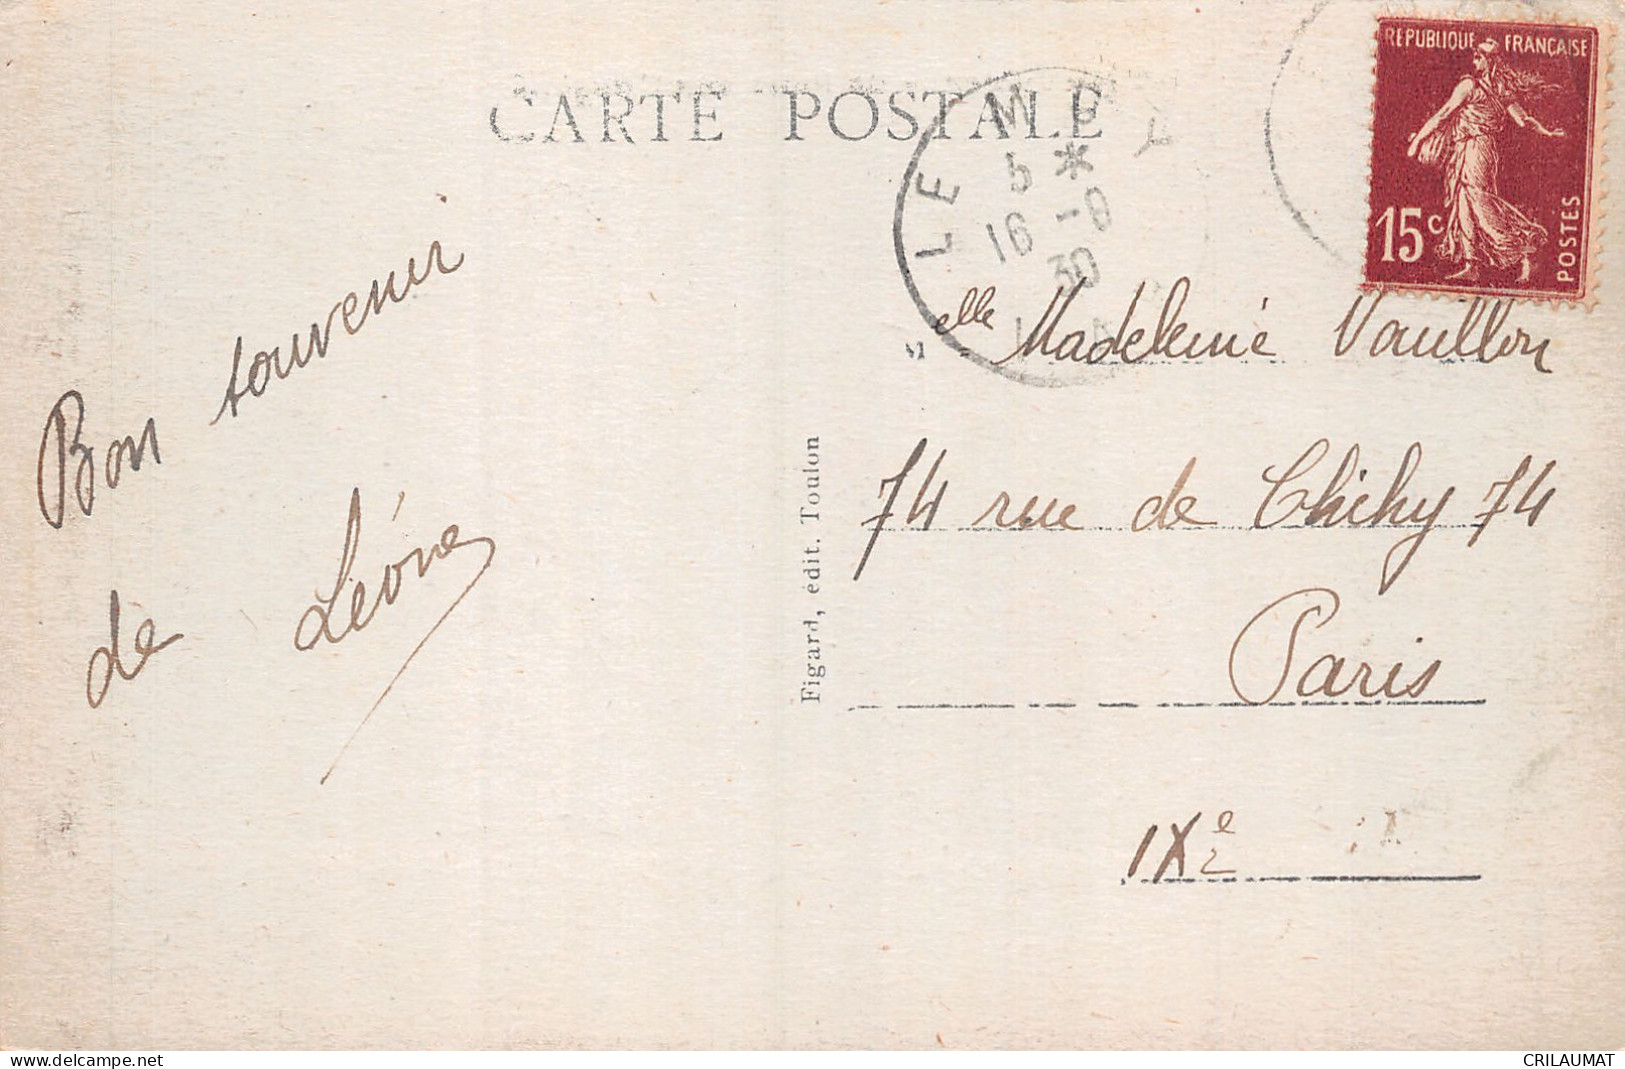 CARTE POSTALE
RÉPUBLIQUE FRANÇAISE
15c
POSTES
LE MUY
5 *
16 -8
30
Bon souvenir
de Léone
Figard, édit. Toulon
Melle Madeleine Vaullon
74 rue de Clichy 74
Paris
IXe
delcampe.net
CRILAUMAT